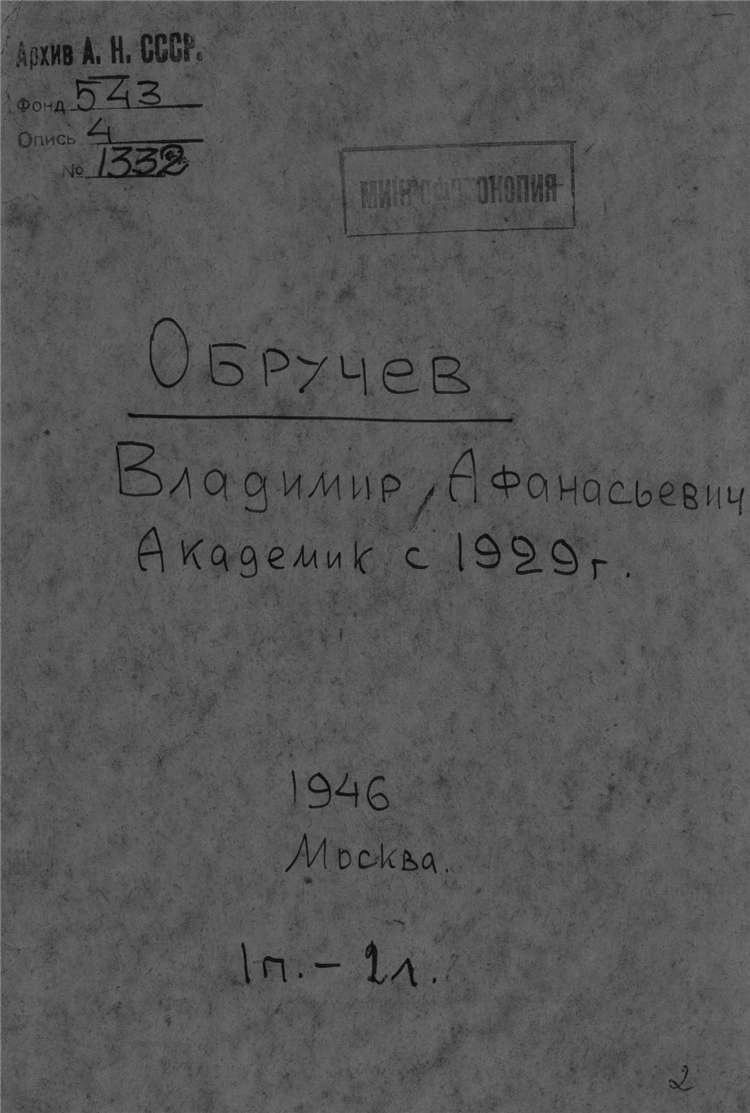 Архив А. Н. СССР.
Фонд 543
Опись 4
№ 1332
МИКРОФОТОКОПИЯ
Обручев
Владимир, Афанасьевич
Академик с 1929 г.
1946
Москва.
1п. – 2л.
2